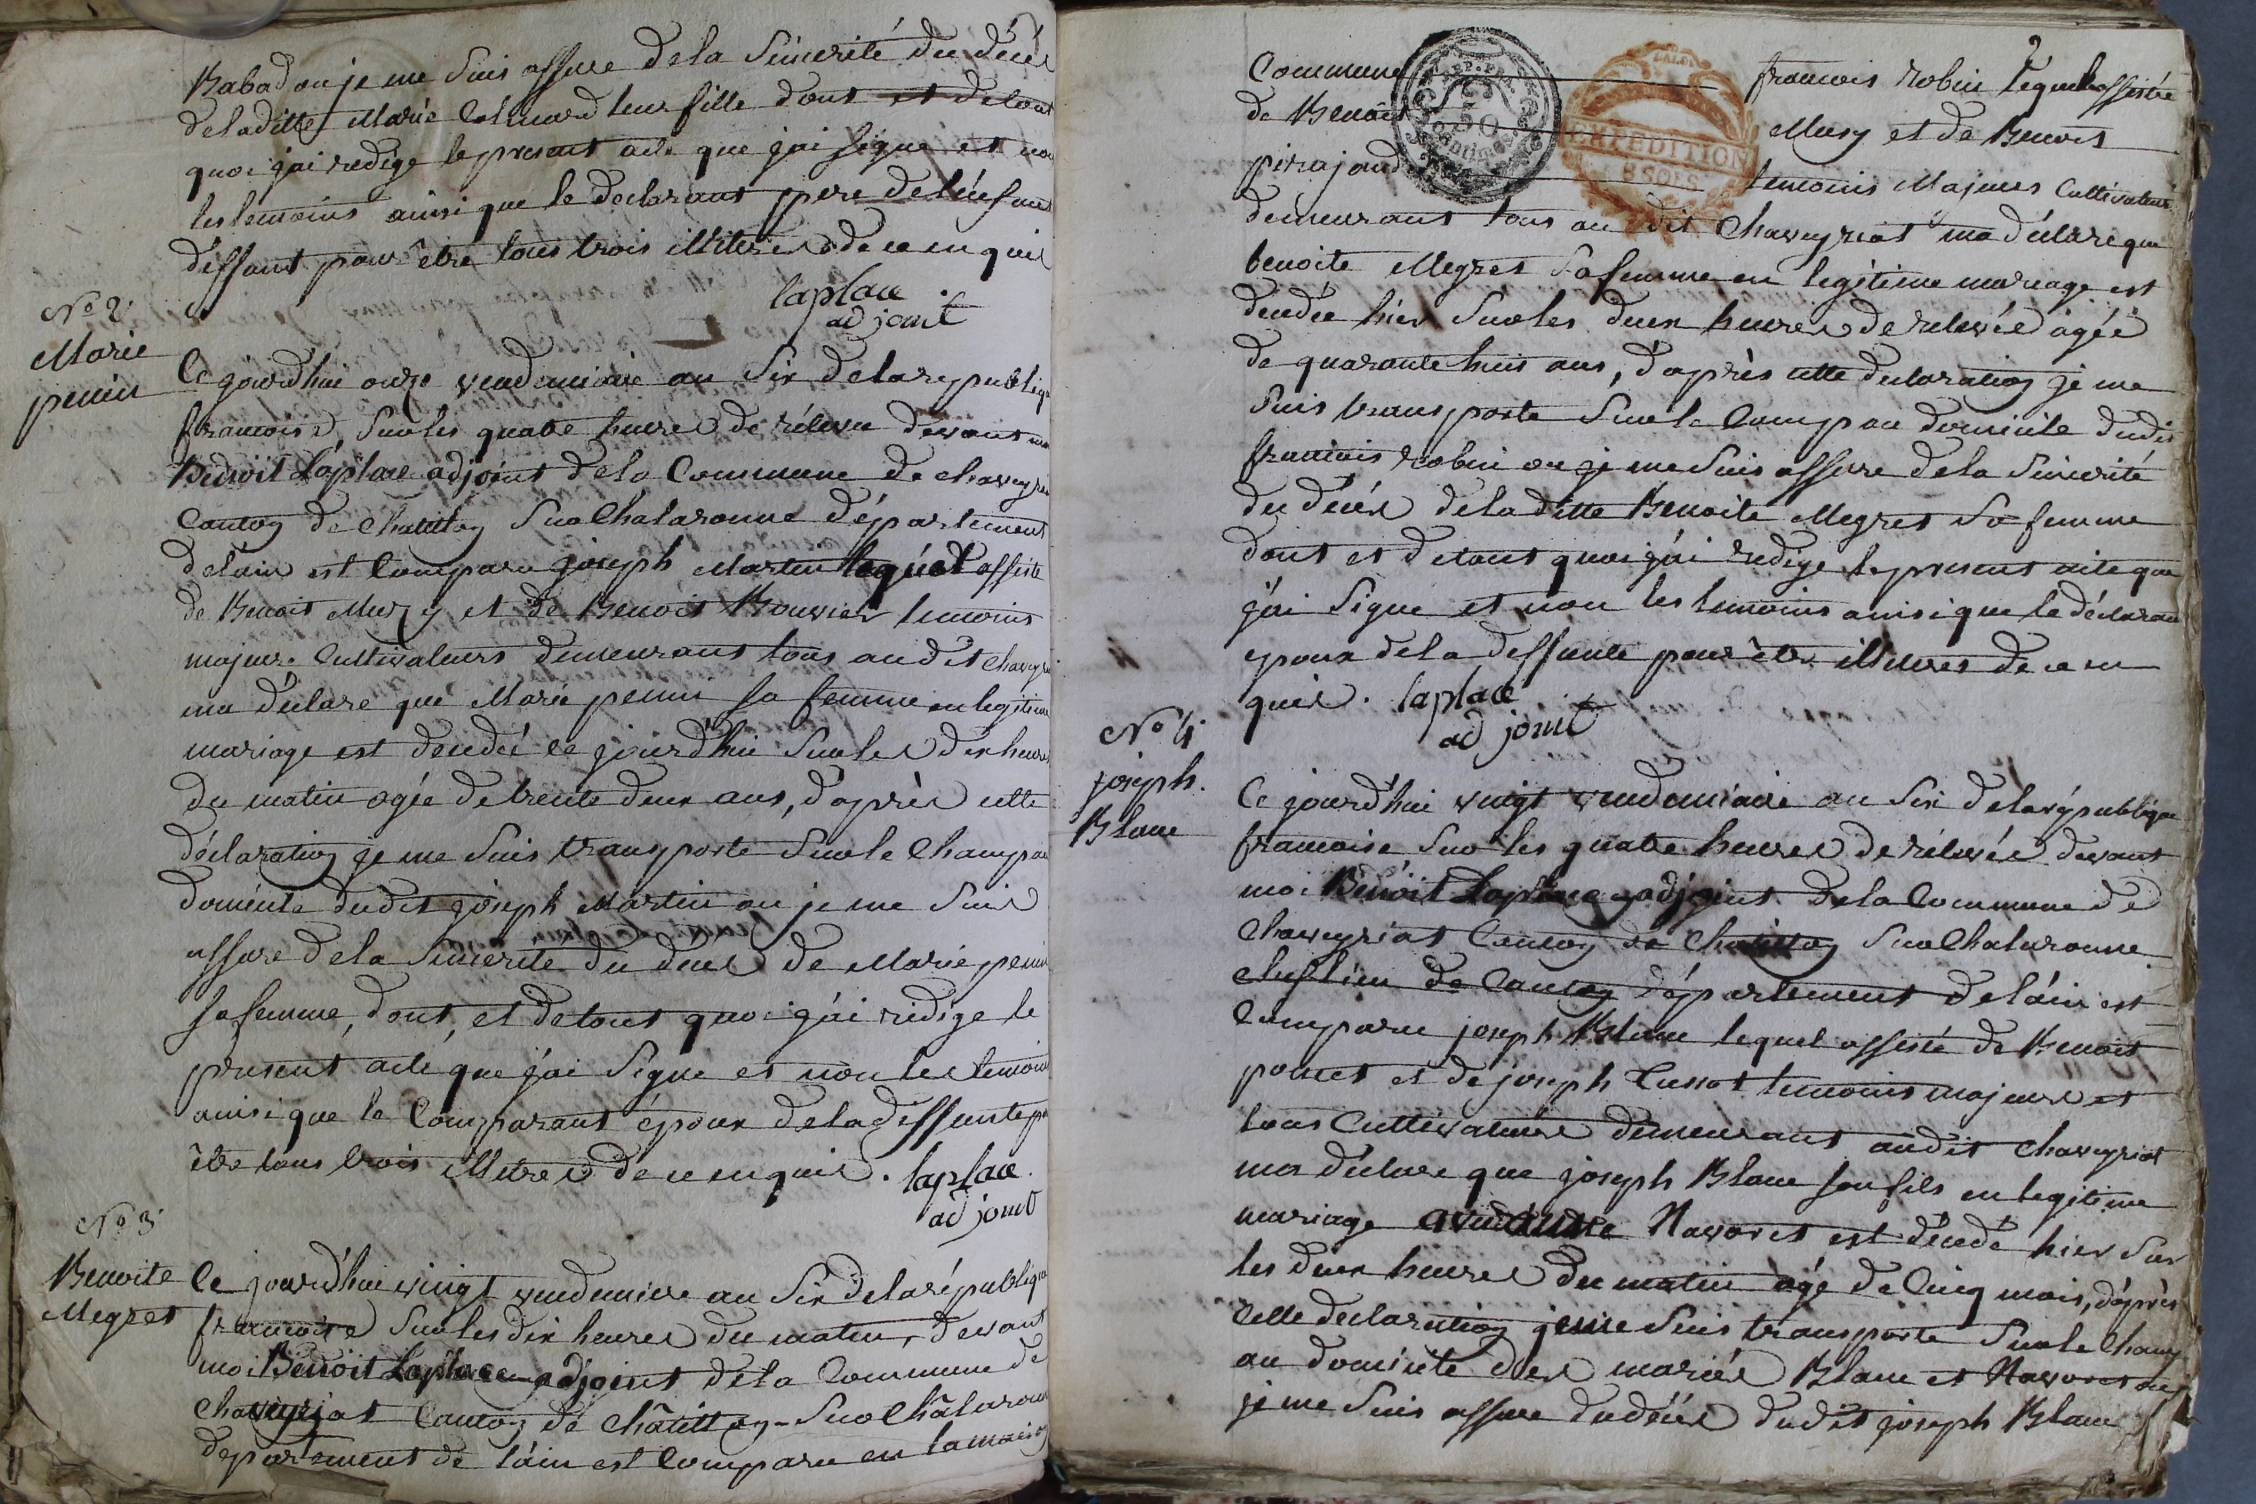 Babad ou je me suis assure de la sincerité du décé
de laditte Marie Colmard leur fille dont et de tout
quoi j'ai redige le present acte que j'ai signe et non
les temoins ainsi que le declarant pere de l'enfant
deffunt pour être tous trois illiteres de ce enquis
laplace
adjoint
No 2.
Marie
penin
Ce gourd'hui onze vendemiaire an Six de la republiqu
francoise, sur les quatre heures de relevee devant
Benoit Laplace adjoint de la Commune de chaveyria
Canton de Chatillon Sur Chalaronne département
de l'ain est Comparu joseph Martin lequel assiste
de Benoit Musy et de Benoit Bouvier temoins
majeurs Cultivateurs demeurant tous audit chaveyri
ma déclare que Marie penin sa femme en legitime
mariage est decedée ce jourd'hui sur les dix heures
du matin agée de trente deux ans, d'après cette
déclaration je me suis transporte Sur le Champ au
domicile dudit joseph Martin ou je me suis
assure de la sincerité du déces de Marie penin
sa femme, dont, et de tout quoi j'ai redige le
present acte que j'ai signe et non les temoins
ainsi que le Comparant époux de la deffunte p
être tous trois illiteres de ce enquis. laplace
adjoint
No 3.
Benoite
Megret
Ce jourd'hui vingt vendemiere an Six de la républiqu
francoise Sur les dix heures du matin, devant
moi Benoit Laplace adjoint de la Commune de
chaveyriat Canton de châtillon-Sur Châlaronn
departement de l'ain est Comparu en la maison
2
Commune francois robin lequel assistée
de Benoit Musy et de Benoit
pirajoud temoins Majeurs Cultivateurs
demeurant tous au dit Chaveyriat ma déclare que
benoite Megret Sa femme en legitime mariage est
decedée hier Sur les deux heures de relevée âgée
de quarante huit ans, d'après cette declaration je me
suis transporte Sur le Champ au domicile dudit
francois robin ou je me suis assure de la Sincerité
du décés de la ditte Benoite Megret Sa femme
dont et de tout quoi j'ai redige le present acte que
j'ai Signe et non les temoins ainsi que le déclaran
epoux de la deffunte pour être illiteres de ce en
quis. laplace
adjoint
No 4.
joseph.
Blanc
Ce jourd'hui vingt vendemiaire an Six de la république
francoise Sur les quatre heures de rélevée devant
moi Benoit Laplace adjoint de la Commune de
Chaveyriat Canton de Chatillon Sur Chalaronne
cheflieu de Canton département de l'ain est
Comparu joseph Blanc lequel assisté de Benoit
poncet et de joseph temoins majeurs et
tous Cultivateurs demeurant audit Chaveyriat
ma déclare que joseph Blanc son fils en legitime
mariage Navoret est décedé hier Sur
les deux heures du matin agé de Cinq mois, d'après
Cette declaration je me suis transporte Sur le Champ
au domicile des mariés Blanc et Navoret ou
je me suis assure du décés dudit joseph Blanc
REP. FRA.
50
Centimes
EXPEDITION
8 SOLS